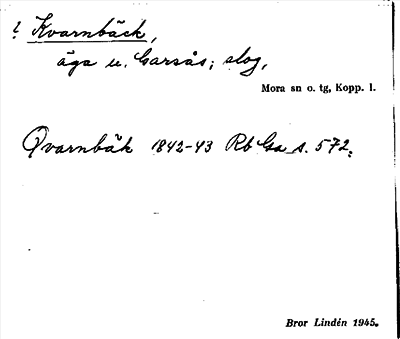 ! Kvarnbäck,
äga u. Garsås; skog,
Mora sn o. tg, Kopp. l.
Qvarnbäk 1842-43 Rb Ga s. 572.
Bror Lindén 1945.